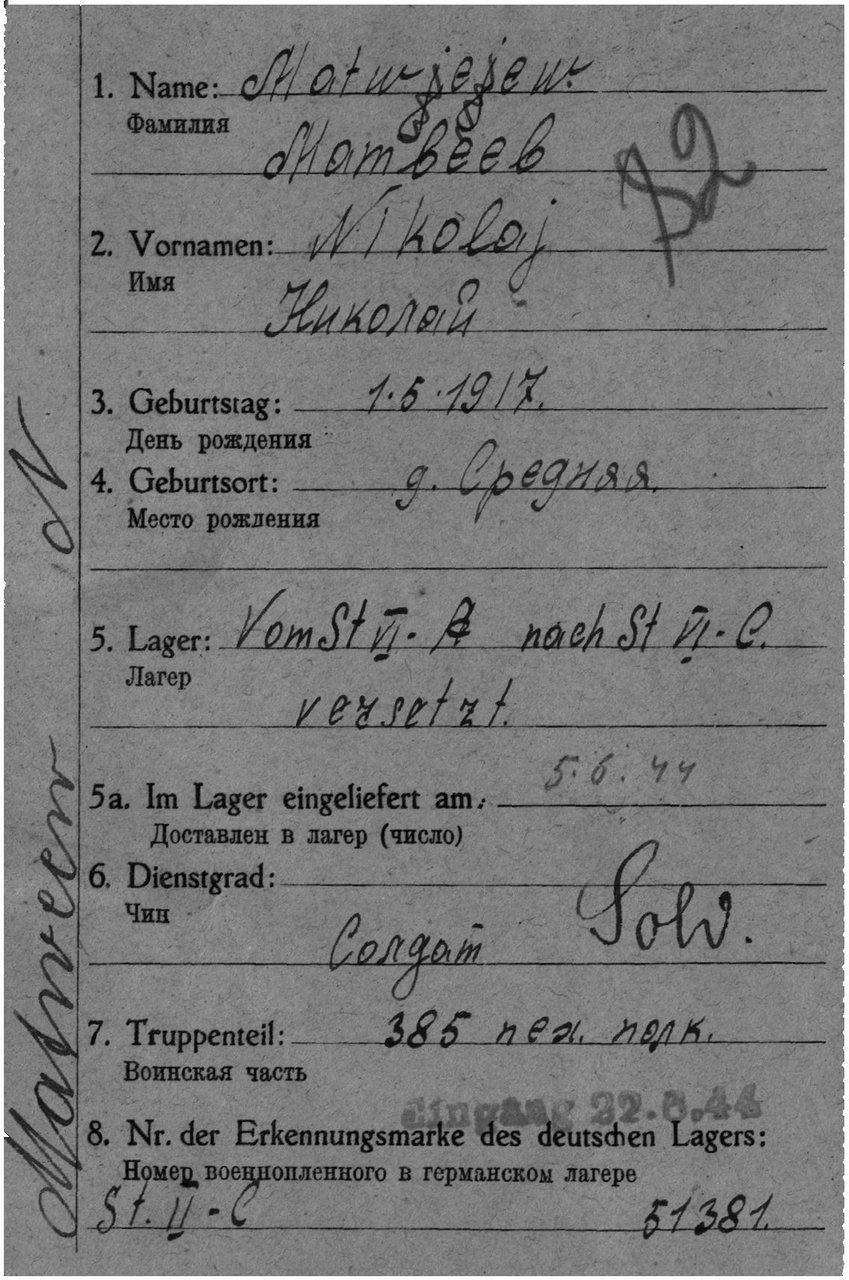 1. Name: Matwjejew.
Фамилия
Матвеев
2. Vornamen: Nikolaj
Имя
Николай
3. Geburtstag: 1.5.1917.
День рождения
4. Geburtsort: д. Средняя.
Место рождения
5. Lager: Vom St VI-A nach St VI-C.
Лагер
versetzt.
5a. Im Lager eingeliefert am: 5.6.44
Доставлен в лагер (число)
6. Dienstgrad:
Чин
Солдат Sold.
7. Truppenteil: 385 пех. полк.
Воинская часть
Eingang 22.6.44
8. Nr. der Erkennungsmarke des deutschen Lagers:
Номер военнопленного в германском лагере
St. II-C 51381.
Matveew N